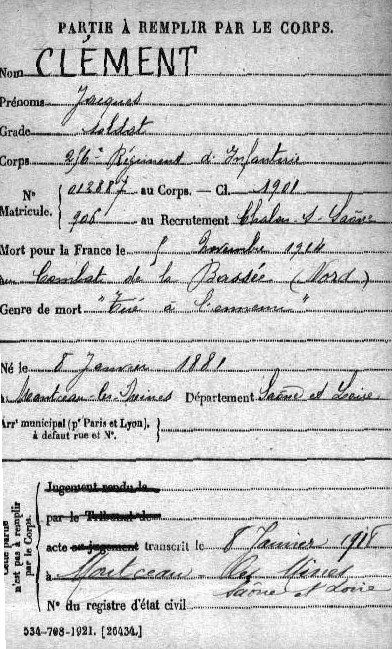 PARTIE À REMPLIR PAR LE CORPS.
Nom CLÉMENT
Prénoms Jacques
Grade soldat
Corps 256e Régiment d'Infanterie
N° Matricule. { 012887 au Corps. — Cl. 1901
906 au Recrutement Chalon-s-Saône
Mort pour la France le 5 1914
au Combat de la Bassée (Nord)
Genre de mort "Tué à l'ennemi"
Né le 8 Janvier 1881
à Montceau-les-Mines Département Saône et Loire
Arrt municipal (pr Paris et Lyon),
à défaut rue et N°.
Cette partie n'est pas à remplir par le Corps.
Jugement rendu le
par le Tribunal de
acte ou jugement transcrit le 8 Janvier 1918
à Montceau les Mines
Saône et Loire
N° du registre d'état civil
534-708-1921. [26434.]